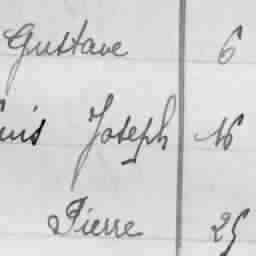 Gustave 6
uis Joseph 16
Pierre 25